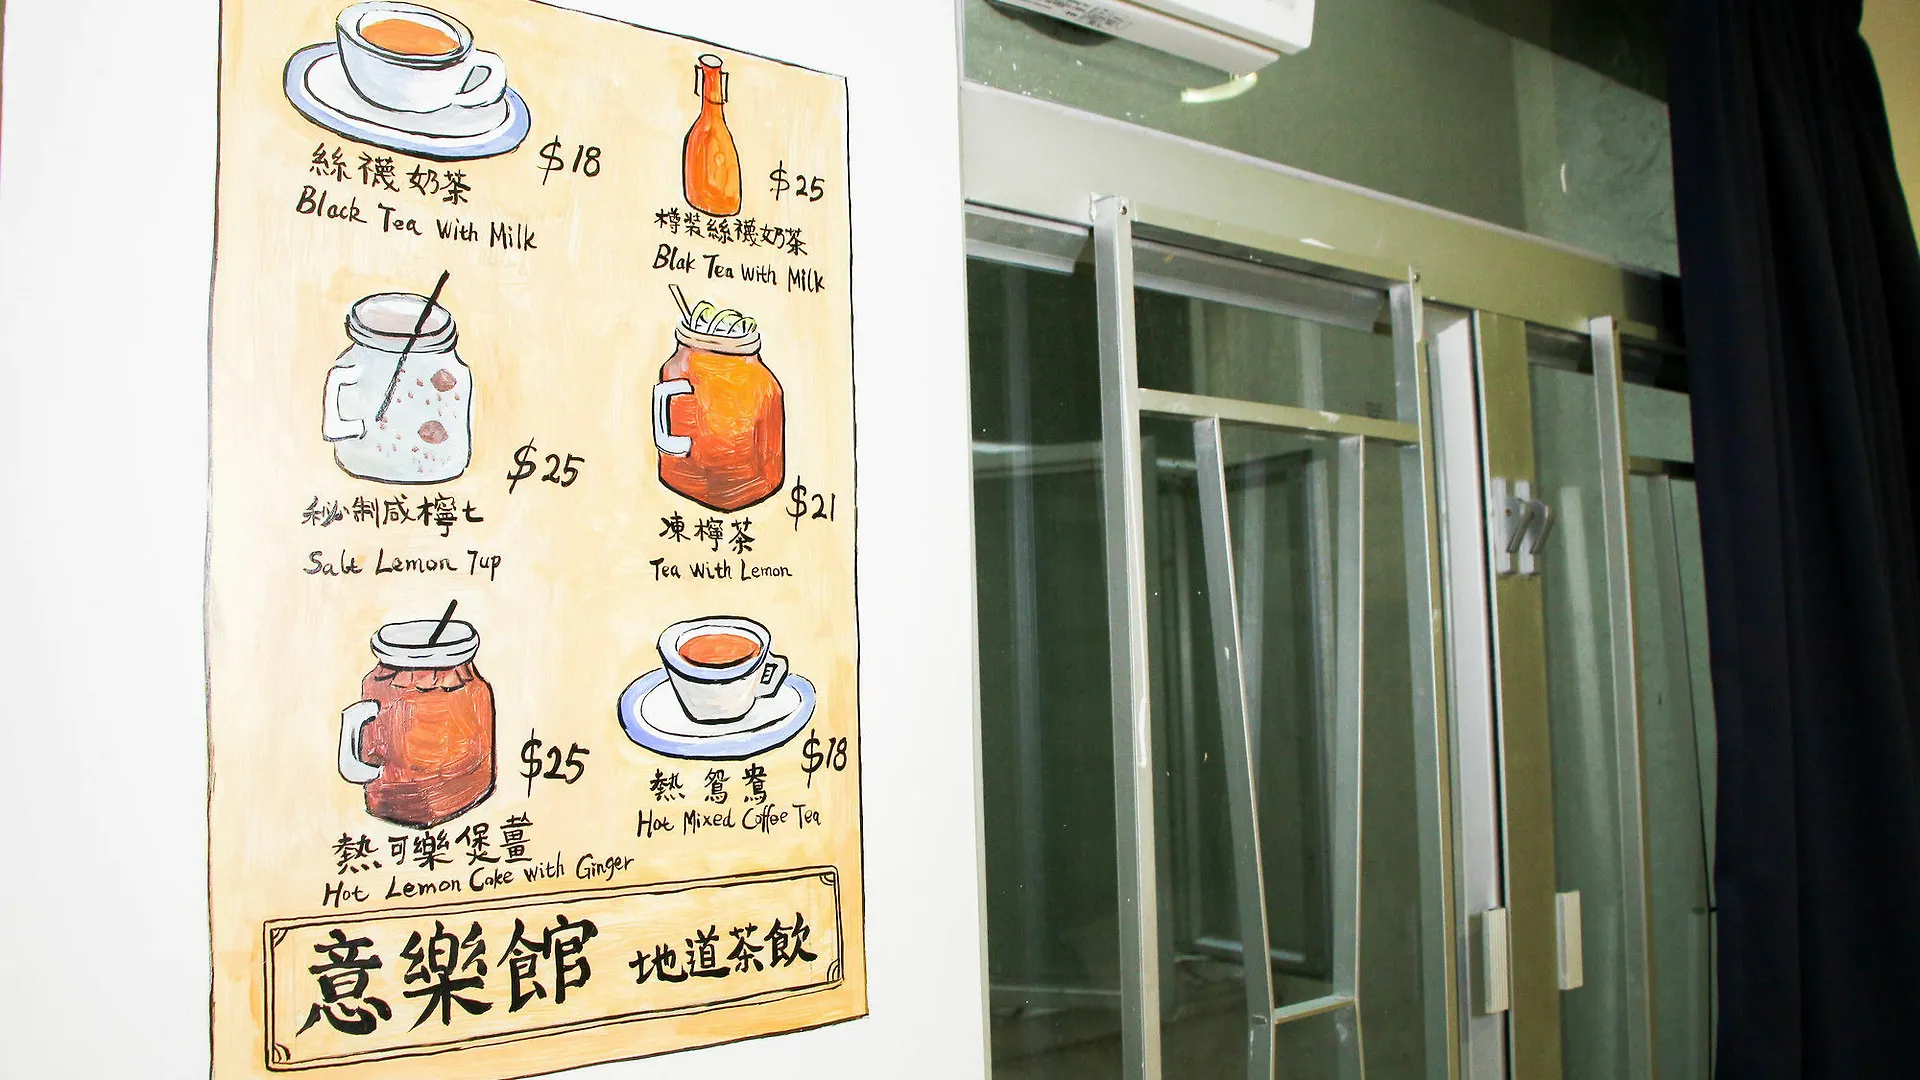 $18
絲襪奶茶
Black Tea With Milk
$25
樽裝絲襪奶茶
Blak Tea With Milk
$25
秘制咸檸七
Salt Lemon 7up
$21
凍檸茶
Tea With Lemon
$25
熱可樂煲薑
Hot Lemon Coke with Ginger
$18
熱鴛鴦
Hot Mixed Coffee Tea
意樂館 地道茶飲